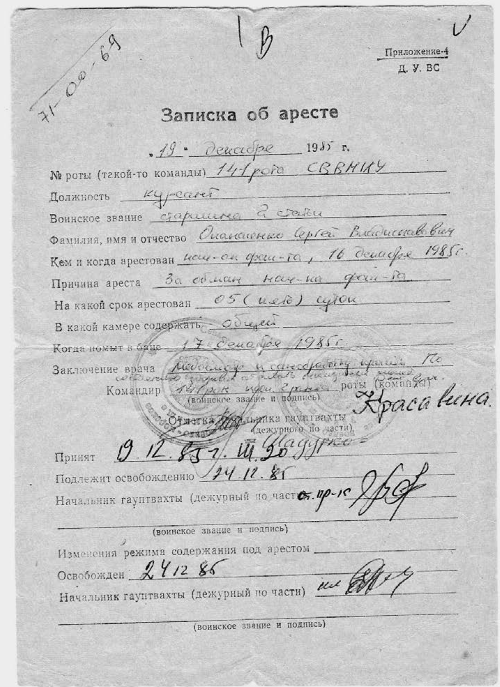 71-00-69
В
Приложение-4
Д. У. ВС
Записка об аресте
"19" декабря 1985 г.
№ роты (такой-то команды) 141 рота СВВМИУ
Должность курсант
Воинское звание старшина 2 статьи
Фамилия, имя и отчество Сергей Владиславович
Кем и когда арестован нач-ом фак-та, 16 декабря 1985г.
Причина ареста За обман нач-ка фак-та
На какой срок арестован 05 (пять) суток
В какой камере содержать общей
Когда помыт в бане 17 декабря 1985г
Заключение врача
Командир роты (команды)
(воинское звание и подпись)
Отметка начальника гауптвахты Красавина.
(дежурного по части)
Принят 19.12.85г.
Подлежит освобождению 24.12.85
Начальник гауптвахты (дежурный по части) ст. пр-к
(воинское звание и подпись)
Изменения режима содержания под арестом
Освобожден 24 12 85
Начальник гауптвахты (дежурный по части)
(воинское звание и подпись)